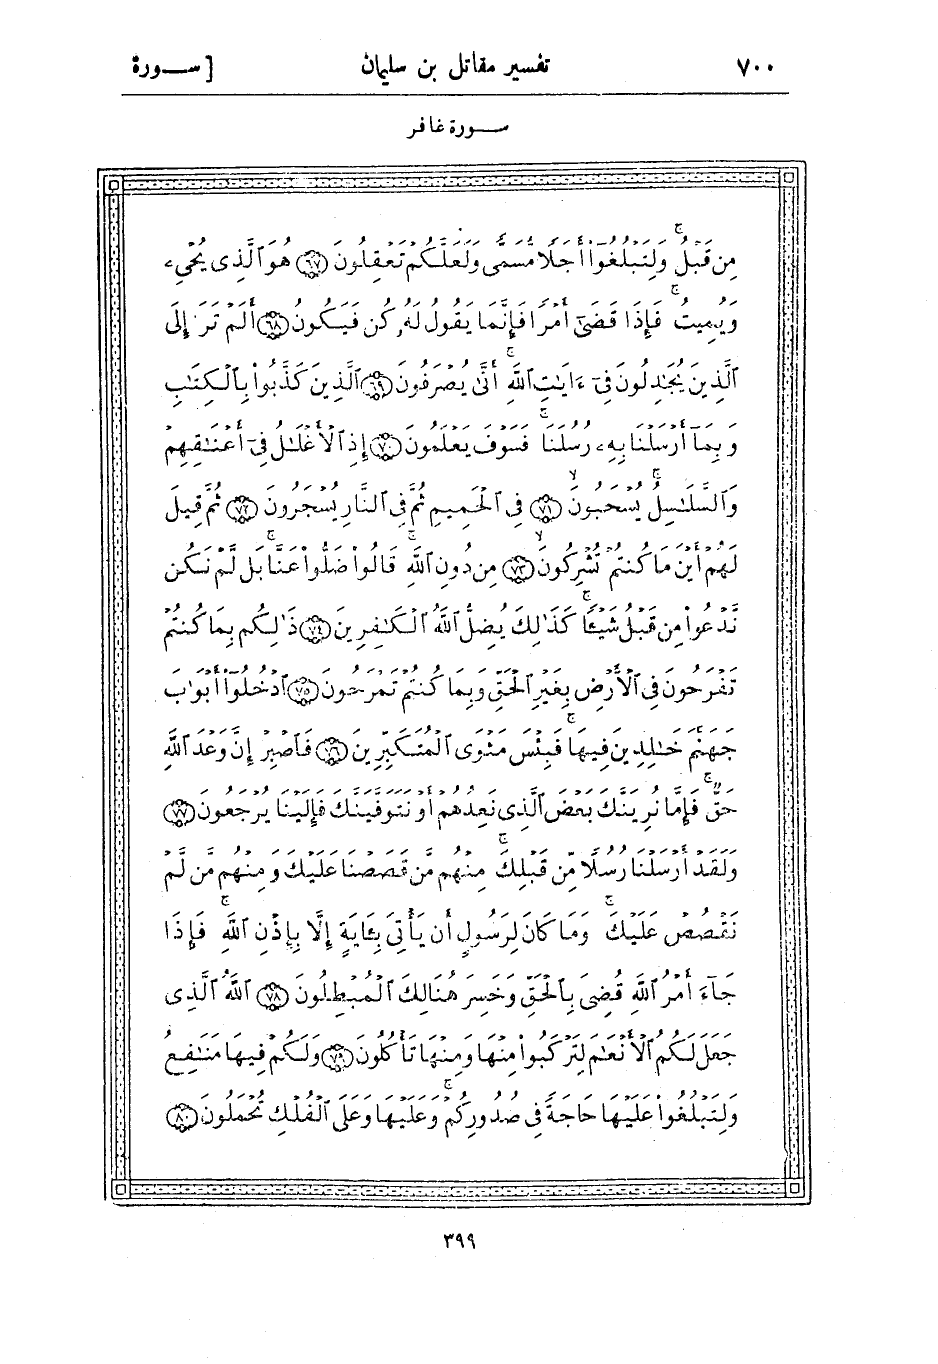 ٧٠٠ تفسير مقاتل بن سليمان [ ســورة
ســورة غافر
مِن قَبْلُ ۚ وَلِتَبْلُغُوٓا۟ أَجَلًا مُّسَمًّى وَلَعَلَّكُمْ تَعْقِلُونَ ﴿٦٧﴾ هُوَ ٱلَّذِى يُحْىِۦ
وَيُمِيتُ ۖ فَإِذَا قَضَىٰٓ أَمْرًا فَإِنَّمَا يَقُولُ لَهُۥ كُن فَيَكُونُ ﴿٦٨﴾ أَلَمْ تَرَ إِلَى
ٱلَّذِينَ يُجَٰدِلُونَ فِىٓ ءَايَٰتِ ٱللَّهِ ۚ أَنَّىٰ يُصْرَفُونَ ﴿٦٩﴾ ٱلَّذِينَ كَذَّبُوا۟ بِٱلْكِتَٰبِ
وَبِمَآ أَرْسَلْنَا بِهِۦ رُسُلَنَا ۚ فَسَوْفَ يَعْلَمُونَ ﴿٧٠﴾ إِذِ ٱلْأَغْلَٰلُ فِىٓ أَعْنَٰقِهِمْ
وَٱلسَّلَٰسِلُ ۚ يُسْحَبُونَ ۙ ﴿٧١﴾ فِى ٱلْحَمِيمِ ثُمَّ فِى ٱلنَّارِ يُسْجَرُونَ ﴿٧٢﴾ ثُمَّ قِيلَ
لَهُمْ أَيْنَ مَا كُنتُمْ تُشْرِكُونَ ۙ ﴿٧٣﴾ مِن دُونِ ٱللَّهِ ۚ قَالُوا۟ ضَلُّوا۟ عَنَّا ۚ بَل لَّمْ نَكُن
نَّدْعُوا۟ مِن قَبْلُ شَيْـًٔا ۚ كَذَٰلِكَ يُضِلُّ ٱللَّهُ ٱلْكَٰفِرِينَ ﴿٧٤﴾ ذَٰلِكُم بِمَا كُنتُمْ
تَفْرَحُونَ فِى ٱلْأَرْضِ بِغَيْرِ ٱلْحَقِّ وَبِمَا كُنتُمْ تَمْرَحُونَ ﴿٧٥﴾ ٱدْخُلُوٓا۟ أَبْوَٰبَ
جَهَنَّمَ خَٰلِدِينَ فِيهَا ۚ فَبِئْسَ مَثْوَى ٱلْمُتَكَبِّرِينَ ﴿٧٦﴾ فَٱصْبِرْ إِنَّ وَعْدَ ٱللَّهِ
حَقٌّ ۚ فَإِمَّا نُرِيَنَّكَ بَعْضَ ٱلَّذِى نَعِدُهُمْ أَوْ نَتَوَفَّيَنَّكَ فَإِلَيْنَا يُرْجَعُونَ ﴿٧٧﴾
وَلَقَدْ أَرْسَلْنَا رُسُلًا مِّن قَبْلِكَ ۚ مِنْهُم مَّن قَصَصْنَا عَلَيْكَ وَمِنْهُم مَّن لَّمْ
نَقْصُصْ عَلَيْكَ ۚ وَمَا كَانَ لِرَسُولٍ أَن يَأْتِىَ بِـَٔايَةٍ إِلَّا بِإِذْنِ ٱللَّهِ ۚ فَإِذَا
جَآءَ أَمْرُ ٱللَّهِ قُضِىَ بِٱلْحَقِّ وَخَسِرَ هُنَالِكَ ٱلْمُبْطِلُونَ ﴿٧٨﴾ ٱللَّهُ ٱلَّذِى
جَعَلَ لَكُمُ ٱلْأَنْعَٰمَ لِتَرْكَبُوا۟ مِنْهَا وَمِنْهَا تَأْكُلُونَ ﴿٧٩﴾ وَلَكُمْ فِيهَا مَنَٰفِعُ
وَلِتَبْلُغُوا۟ عَلَيْهَا حَاجَةً فِى صُدُورِكُمْ ۚ وَعَلَيْهَا وَعَلَى ٱلْفُلْكِ تُحْمَلُونَ ﴿٨٠﴾
٣٩٩